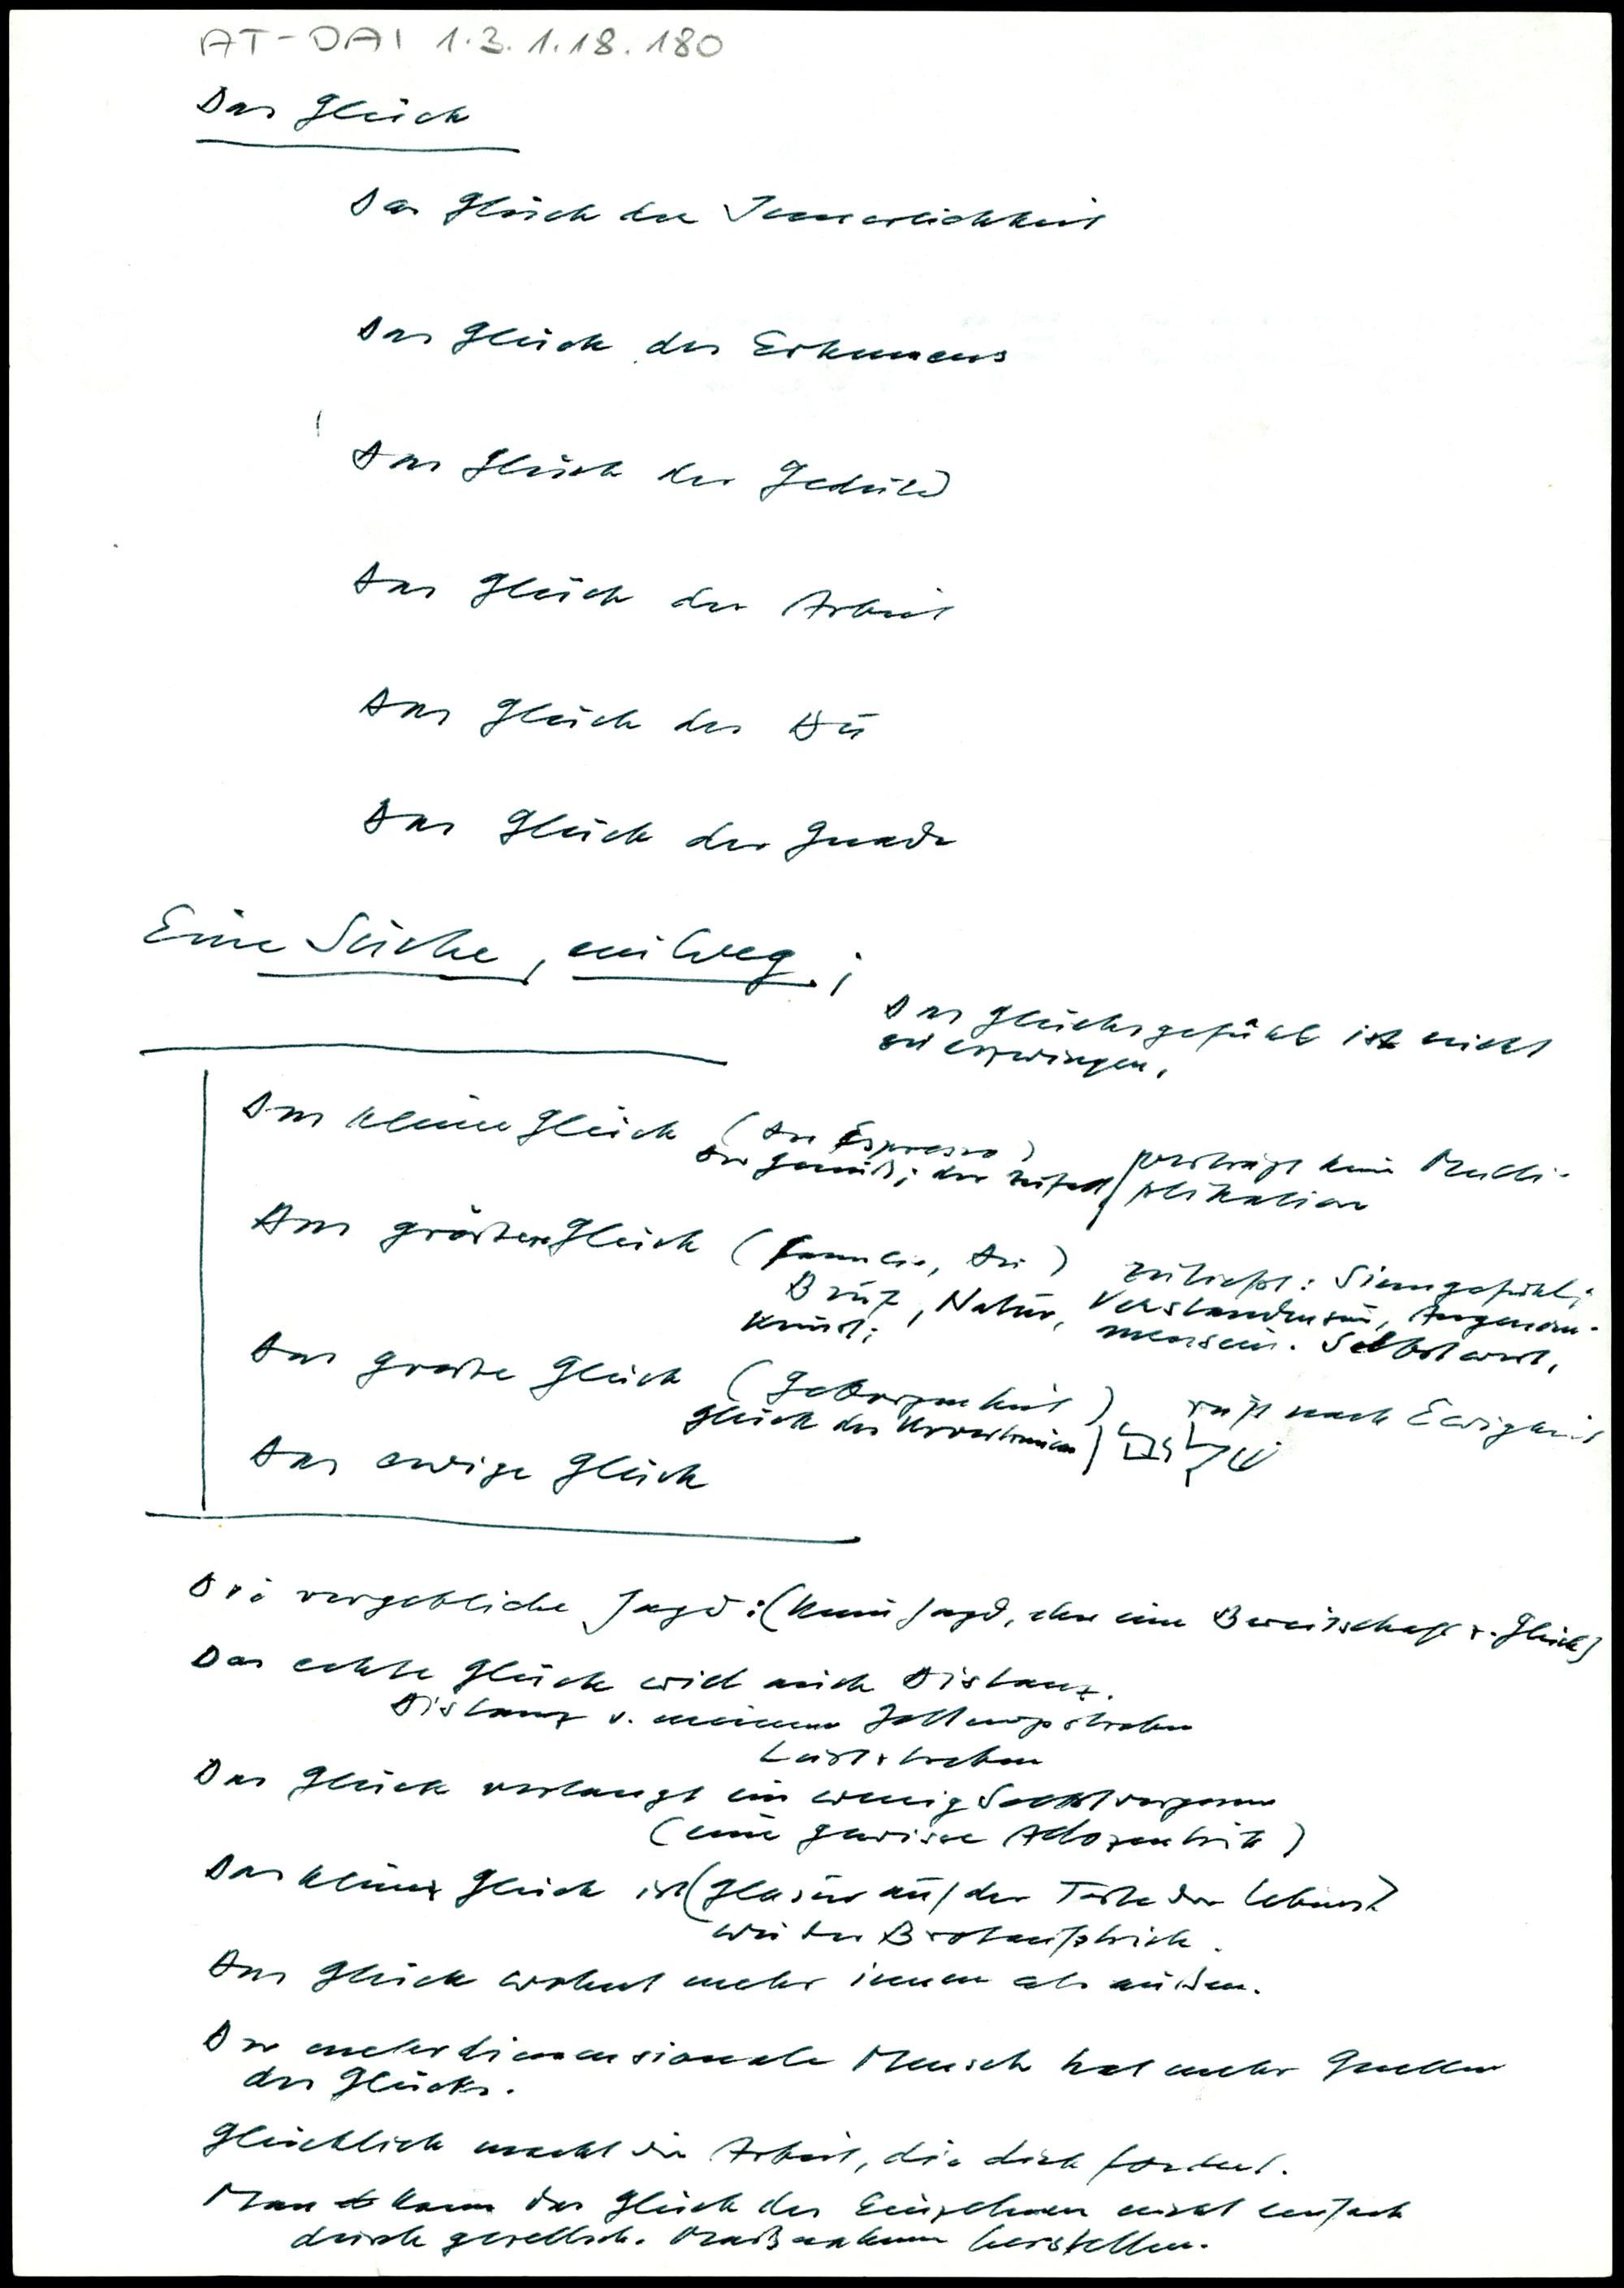 AT-DAI 1.3.1.18.180
Das Glück
Das Glück der Innerlichkeit
Das Glück des Erkennens
Das Glück der Geduld
Das Glück der Arbeit
Das Glück des Du
Das Glück der Gnade
Eine Suche, ein Weg;
Das Glücksgefühl ist nicht
zu erzwingen.
Das kleine Glück (der Espresso)
der Genuß; der Zufall
verträgt keine Multi-
plikation
Das größere Glück (Familie, Du)
Beruf, Natur,
Kunst;
zutiefst: Sinngefühl;
Verstandensein, Angenom-
mensein. Selbstwert,
Das große Glück (Geborgenheit)
Glück des Urvertrauens
ruft nach Ewigkeit
Das ewige Glück
Die vergebliche Jagd: (keine Jagd, eher eine Bereitschaft z. Glück)
Das echte Glück wird auch Distanz.
Distanz v. meinem Geltungsstreben
Luststreben
Das Glück verlangt ein wenig Selbstvergessen
(eine gewisse Allozentrik)
Das kleine Glück ist (Glasur auf der Torte des Lebens)
wie der Brotaufstrich.
Das Glück wohnt mehr innen als außen.
Der mehrdimensionale Mensch hat mehr Quellen
des Glücks.
Glücklich macht die Arbeit, die dich fordert.
Man kann das Glück des Einzelnen nicht einfach
durch gesellsch. Maßnahmen herstellen.